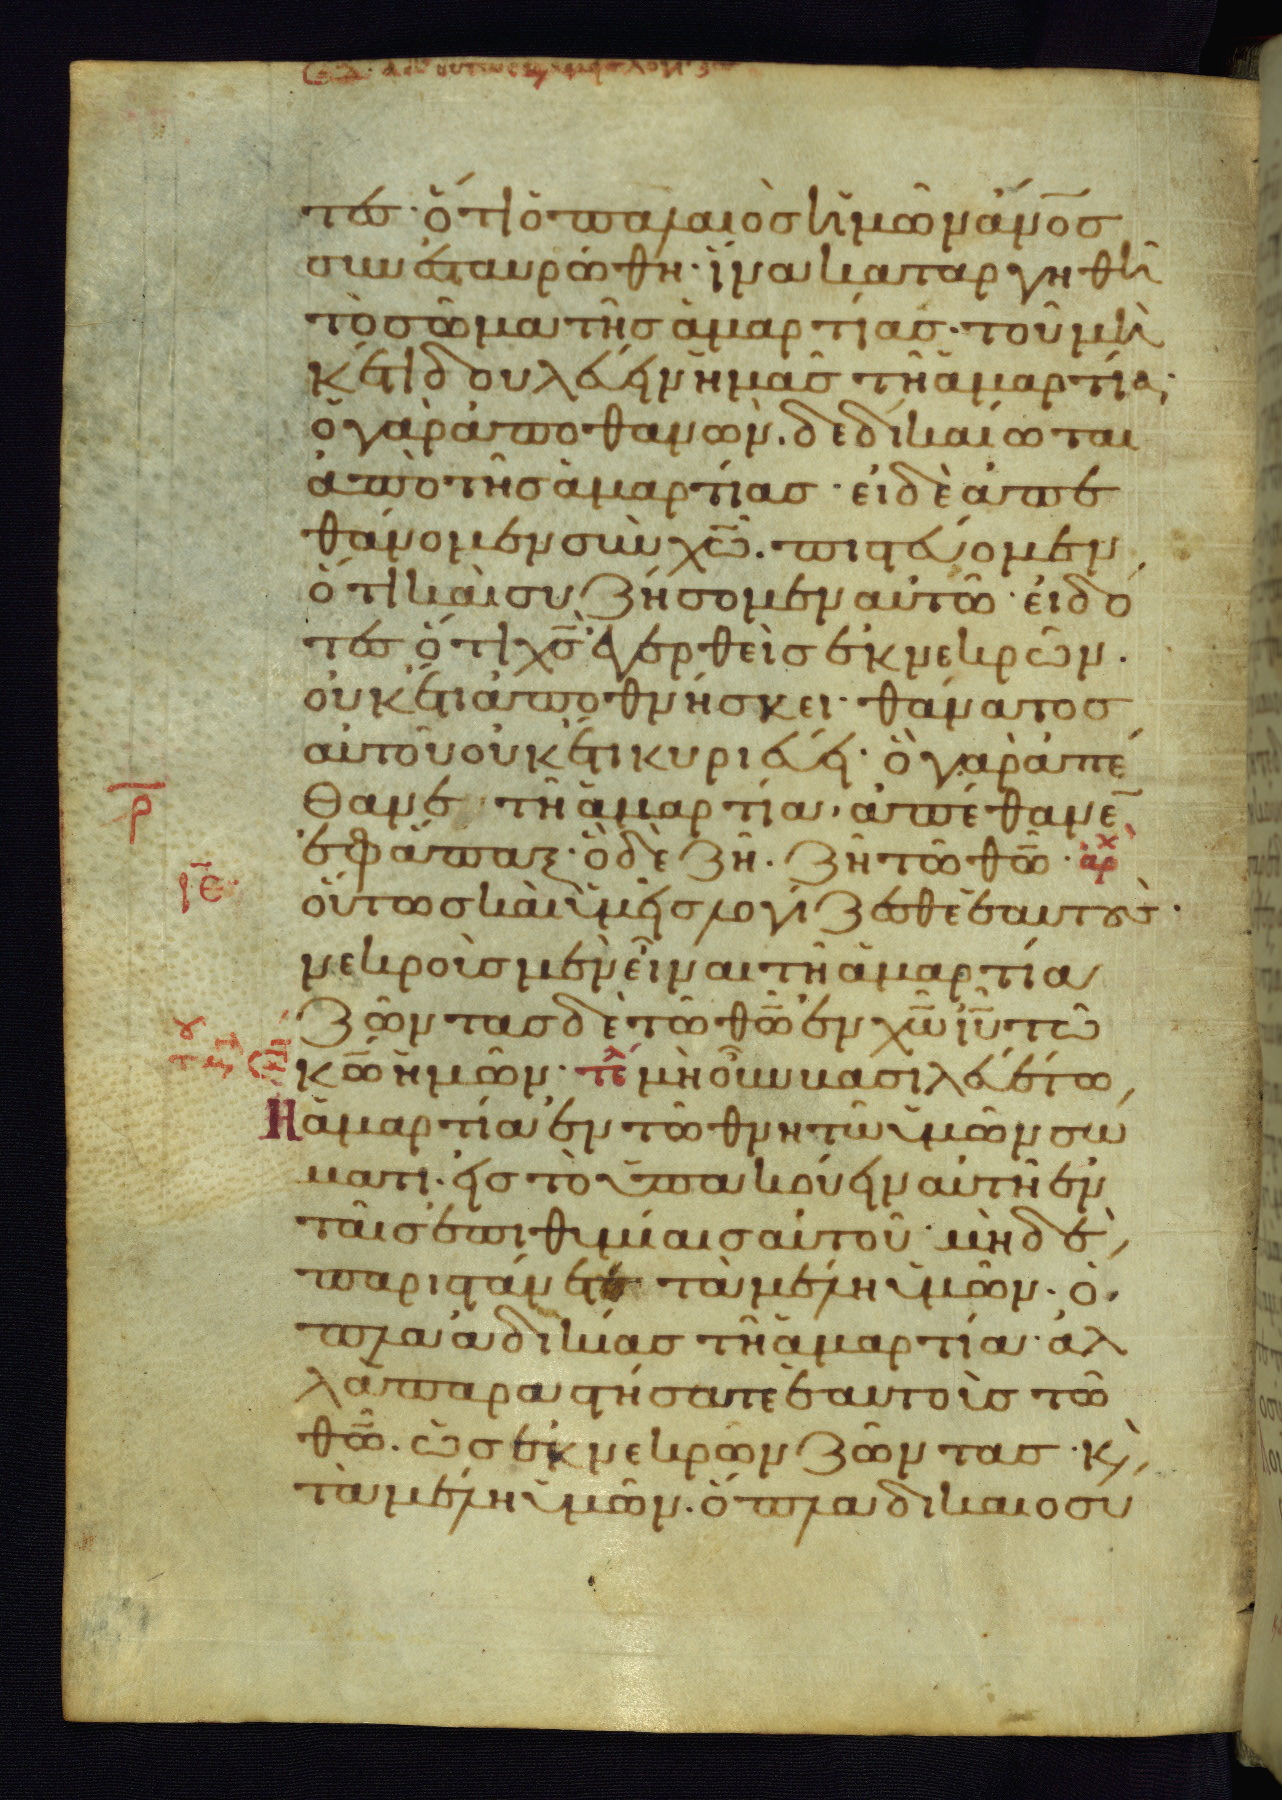 τεσ· ὅτι ὁ παλαιὸσ ἡμῶν ἄνο̅σ
συνεσταυρώθη· ἵνα καταργηθῆ
τὸ σῶμα τῆσ ἁμαρτίασ· τοῦ μὴ
κέτι δουλεύειν ἡμᾶσ τῆ ἁμαρτία·
ὁ γὰρ ἀποθανὼν· δεδικαίωται
ἀπὸ τῆσ ἁμαρτίασ· εἰ δὲ ἀπε
θάνομεν σὺν χω̅· πιστεύομεν
ὅτι καὶ συζήσομεν αὐτῶ· εἰδό
τεσ ὅτι χσ̅ ἐγερθεὶσ ἐκ νεκρῶν·
οὐκέτι ἀποθνήσκει· θάνατοσ
αὐτοῦ οὐκέτι κυριεύει· ὃ γὰρ ἀπέ
θανε τῆ ἁμαρτία· ἀπέθανε̅
ἐφάπαξ· ὃ δὲ ζῆ· ζῆ τῶ θω̅· ἀρχ
οὕτωσ καὶ ὑμεῖσ λογίζεσθε ἑαυτοὺσ·
νεκροὺσ μὲν εἶναι τῆ ἁμαρτία
ζῶντασ δὲ τῶ θω̅ ἐν χω̅ ιυ̅ τῶ
κω̅ ἡμῶν· τε μὴ οὖν βασιλευέτω
Ἡ ἁμαρτία ἐν τῶ θνητῶ ὑμῶν σώ
ματι· εἰσ τὸ ὑπακούειν αὐτῆ ἐν
ταῖσ ἐπιθυμίαισ αὐτοῦ· μηδὲ
παριστάνετε τὰ μέλη ὑμῶν· ὅ
πλα ἀδικίασ τῆ ἁμαρτία· ἀλ
λὰ παραστήσατε ἑαυτοὺσ τῶ
θω̅· ὡσ ἐκ νεκρῶν ζῶντασ· κ̀
τὰ μέλη ὑμῶν· ὅπλα δικαιοσύ
ρ̅
ιε̅